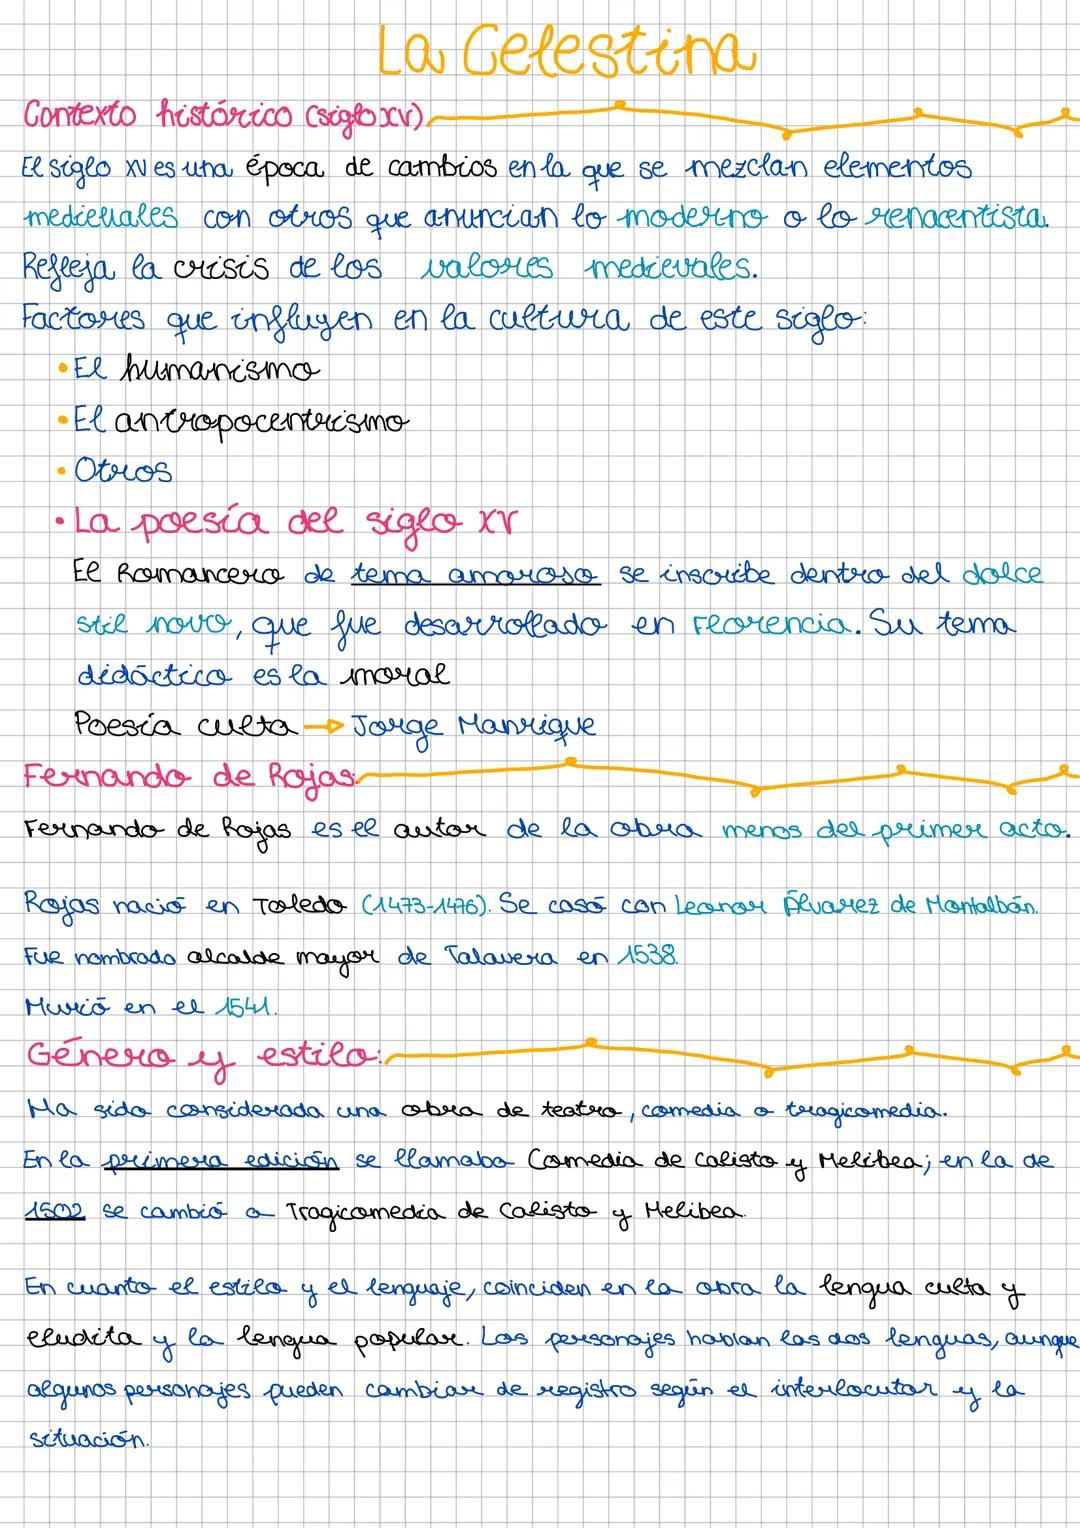 La Celestina
Contexto histórico (siglo XV)
El siglo XV es una época de cambios en la que se mezclan elementos
medievales con otros que anuncian lo moderno o lo renacentista.
Refleja la crisis de los valores medievales.
Factores que influyen en la cultura de este siglo:
• El humanismo
• El antropocentrismo
• Otros
• La poesía del siglo XV
El Romancero de tema amoroso se inscribe dentro del dolce
stil novo, que fue desarrollado en Florencia. Su tema
didáctico es la moral
Poesía culta → Jorge Manrique
Fernando de Rojas:
Fernando de Rojas es el autor de la obra menos del primer acto.
Rojas nació en Toledo (1473-1476). Se casó con Leonor Álvarez de Montalbán.
Fue nombrado alcalde mayor de Talavera en 1538.
Murió en el 1541.
Género y estilo:
Ha sido considerada una obra de teatro, comedia o tragicomedia.
En la primera edición se llamaba Comedia de Calisto y Melibea; en la de
1502 se cambió a Tragicomedia de Calisto y Melibea.
En cuanto el estilo y el lenguaje, coinciden en la obra la lengua culta y
eludita y la lengua popular. Los personajes hablan las dos lenguas, aunque
algunos personajes pueden cambiar de registro según el interlocutor y la
situación.